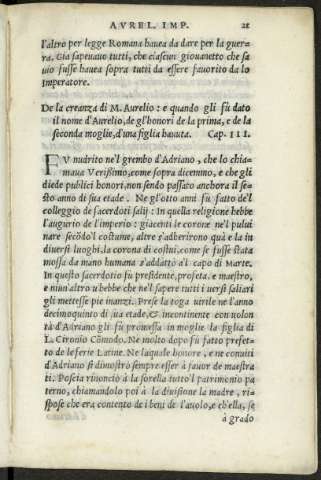 AVREL. IMP. 21
l'altro per legge Romana haueua da dare per la guer-
ra. Gia sapeuano tutti, che ciascun giouanetto che sa
uio fusse haueua sopra tutti da essere fauorito da lo
Imperatore.
De la creanza di M. Aurelio: e quando gli fù dato
il nome d'Aurelio, de gl'honori de la prima, e de la
seconda moglie, d'una figlia hauuta. Cap. III.
FV nudrito ne'l grembo d'Adriano, che lo chia-
maua Verissimo, come sopra dicemmo, e che gli
diede publici honori, non sendo passato anchora il se-
sto anno di sua etade. Ne gl'otto anni fù fatto de'l
colleggio de sacerdoti salij: In quella religione hebbe
l'augurio de l'imperio: giacenti le corone ne'l pului
nare secõdo'l costume, altre s'adherirono quà e la in
diuersi luoghi, la corona di costui, come se fusse stata
mossa da mano humana s'addattò al capo di Marte.
In questo sacerdotio fù presidente, profeta, e maestro,
e niun'altro u'hebbe che ne'l sapere tutti i uersi saliari
gli mettesse pie inanzi. Prese la toga uirile ne l'anno
decimoquinto di sua etade, & incontinente con uolon
tà d'Adriano gli fù promessa in moglie la figlia di
L. Cironio Cõmodo. Ne molto dopo fù fatto prefet-
to de le ferie Latine. Ne laquale honore, e ne conuiti
d'Adriano si dimostrò sempre esser à fauor de maestra
ti. Poscia rinonciò à la sorella tutto'l patrimonio pa
terno, chiamandolo poi à la diuisione la madre, ri-
spose che era contento de i beni de l'auolo, e ch'ella, se
à grado